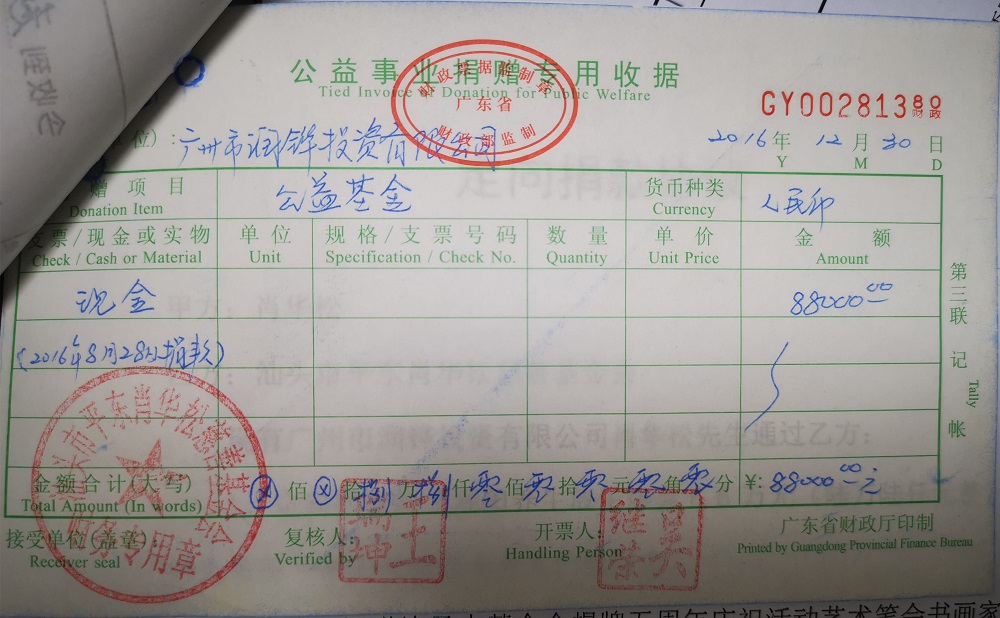 公益事业捐赠专用收据
Tied Invoice of Donation for Public Welfare
财政票据监制章
广东省
财政部监制
GY00281380
财政
位）：广州市润铧投资有限公司
2016年 12月 30日
Y M D
赠项目 公益基金 货币种类 人民币
Donation Item Currency
支票/现金或实物 单位 规格/支票号码 数量 单价 金额
Check / Cash or Material Unit Specification / Check No. Quantity Unit Price Amount
现金 88000.00
(2016年8月28日捐款)
金额合计(大写) ⊗佰⊗拾捌万捌仟零佰零拾零元零角零分 ¥: 88000.00元
Total Amount (In words)
接受单位(盖章): 复核人: 开票人: 广东省财政厅印制
Receiver seal Verified by Handling Person Printed by Guangdong Provincial Finance Bureau
第三联 记帐
Tally
头市平东肖华松慈善基金会
财务专用章